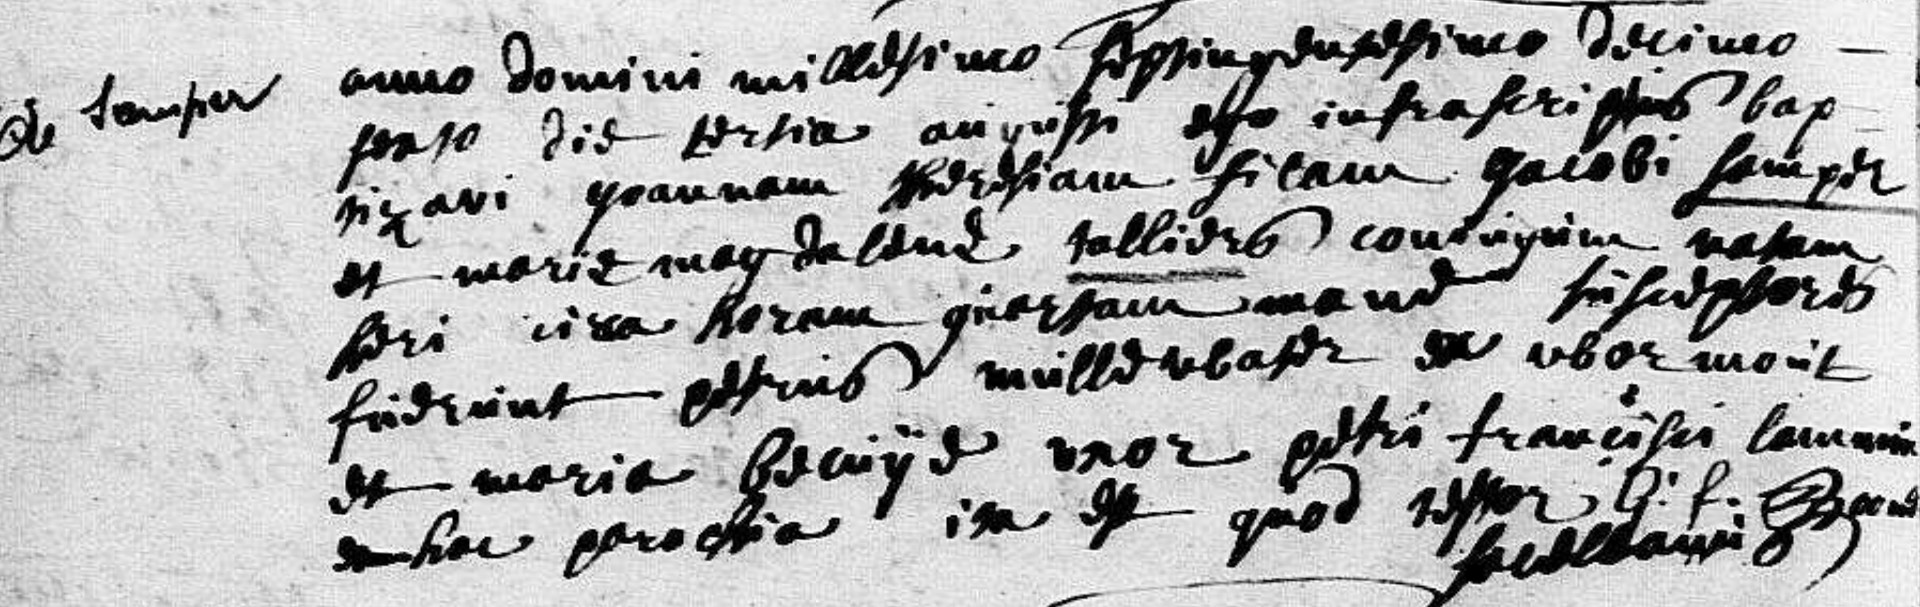 de semper
anno domini millesimo septingentesimo decimo
sexto die tertia augusti ego infrascriptus bap
tizavi joannam theresiam filiam jacobi semper
et marie magdalene tallieres coniugum natam
heri circa horam quartam mane susceptores
fuerunt petrus mullewbater ex wbormout
et maria becuÿe uxor petri francisci
ex hac parochia ita est quod testor